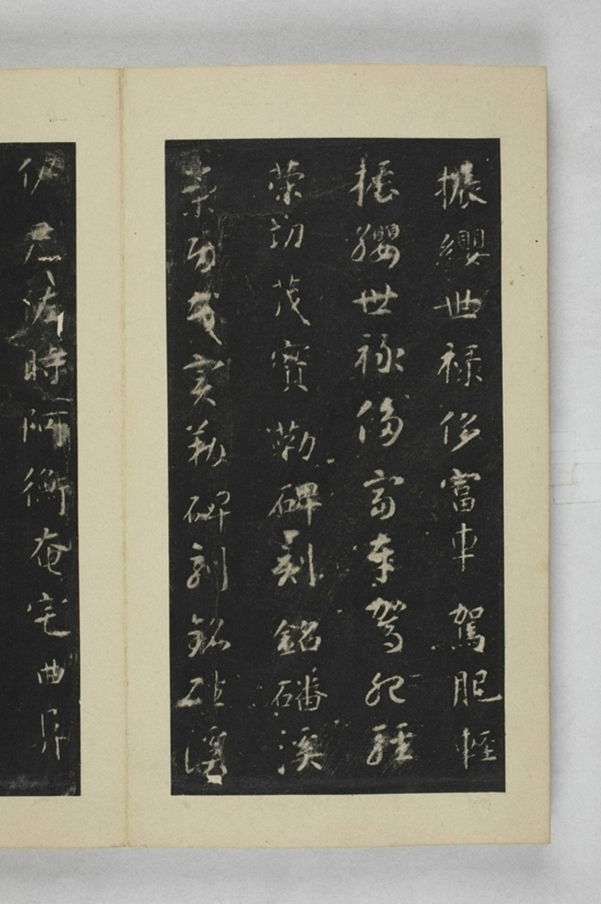 振纓世祿侈富車駕肥輕
振纓世祿侈富車駕肥輕
策功茂實勒碑刻銘磻溪
策功茂實勒碑刻銘磻溪
伊尹佐時阿衡奄宅曲阜